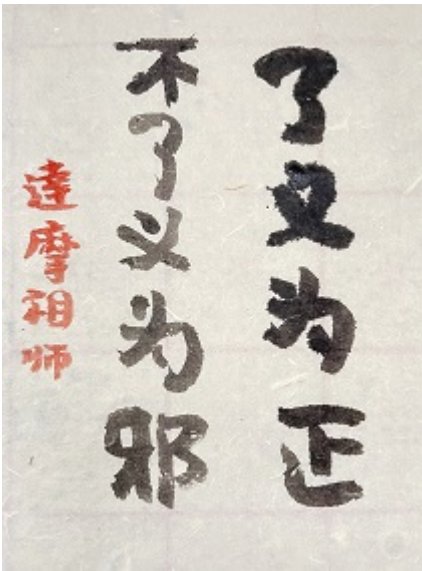 了义为正
不了义为邪
達摩祖师